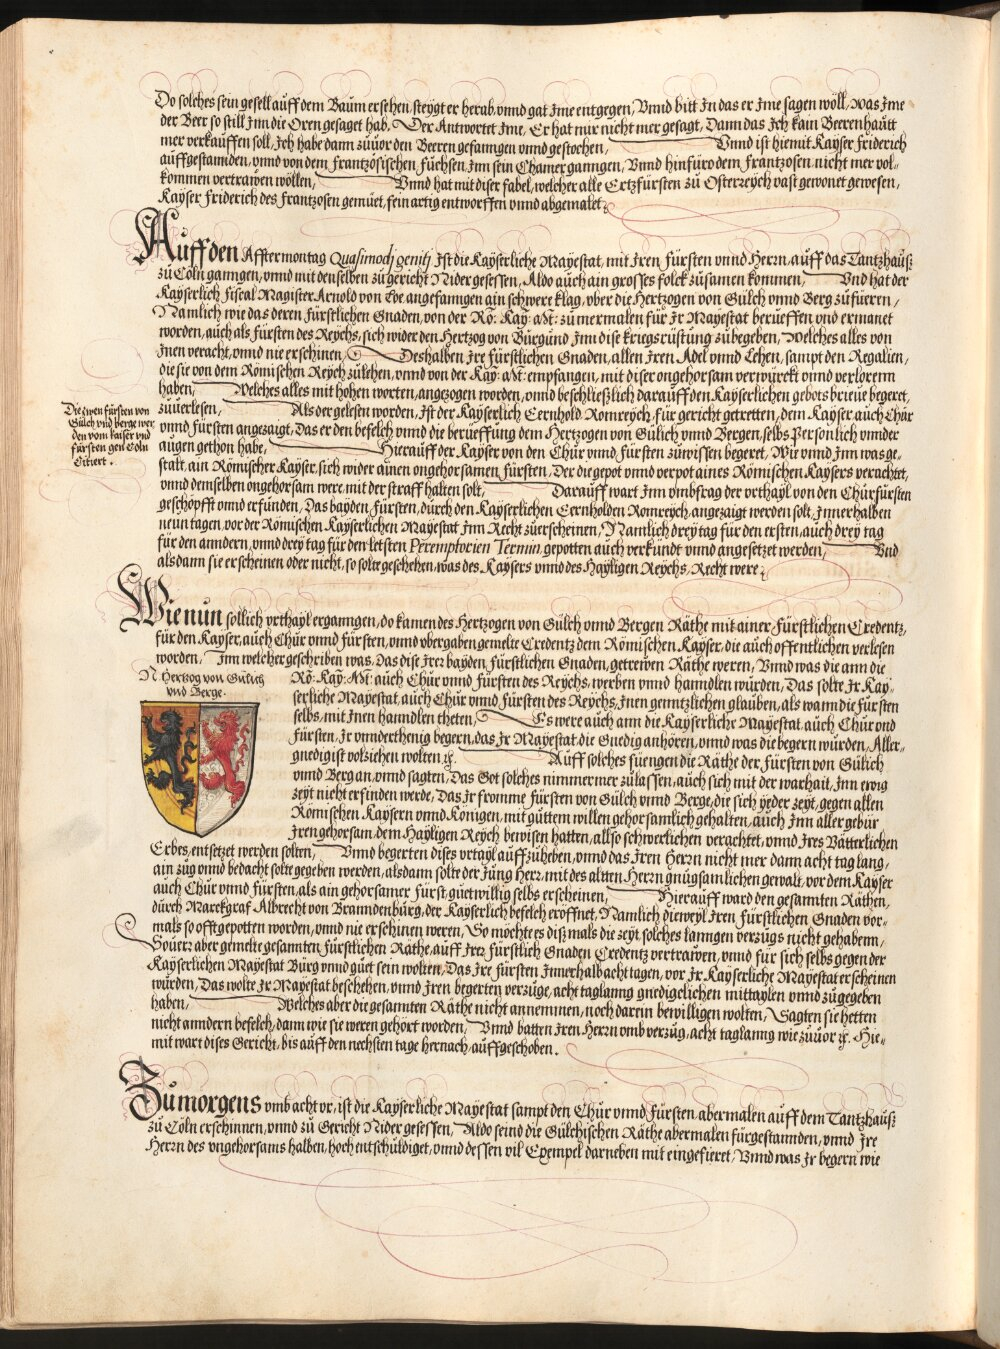 Do solches sein gesell auff dem Baum ersehen, steygt er herab, vnnd gat Jme entgegen, Vnnd bitt Jn das er Jme sagen wöll, was Jme
der Beer so still Jnn die Oren gesaget hab, Der Antwortet Jme, Er hat mir nicht mer gesagt, Dann das Jch kain Beerenhautt
mer verkauffen soll, Jch habe dann züuor den Beeren gefanngen vnnd gestochen, Vnnd ist hiemit Kayser Friderich
auffgestannden, vnnd von dem Frantzösischen Füchsen Jnn sein Chamer ganngen, Vnnd hinfüro dem Frantzosen nicht mer vol-
kommen vertrawen wöllen, Vnnd hat mit diser fabel, welcher alle Ertzfürsten zü Osterreych vast gewonet gewesen,
Kayser Friderich des Frantzosen gemüet, fein artig entworffen vnnd abgemalet.
Auff den Afftermontag Quasimodj genitj Jst die Kayserliche Mayestat, mit Jren Fürsten vnnd Herrn, auff das Tantzhauß
zü Cöln ganngen, vnnd mit denselben zü gericht Nider gesessen, Aldo auch ain grosses folck züsamen kommen, Vnd hat der
Kayserlich Fiscal Magister Arnold von Eve angefanngen ain schwere klag, vber die Hertzogen von Gülch vnnd Berg züfüern,
Namlich wie das deren Fürstlichen Gnaden, von der Rö: Kay: Mt: zü mermalen für Jr Mayestat berüeffen vnd ermanet
worden, auch als Fürsten des Reychs, sich wider den Hertzog von Bürgünd Jnn dise kriegsrüstung zübegeben, Welches alles von
Jnen veracht, vnnd nie erschinen, Deshalben Jre Fürstlichen Gnaden, allen Jren Adel vnnd Lehen, sampt den Regalien,
die sie von dem Römischen Reych zülehen, vnnd von der Kay: Mt: empfangen, mit diser ongehorsam verwürckt vnnd verlorenn
haben, Welches alles mit hohen worten, angezogen worden, vnnd beschließlich darauff den Kayserlichen gebots brieue begeret,
züuerlesen, Als der gelesen worden, Jst der Kayserlich Eernhold Romreych, für gericht getretten, dem Kayser auch Chür
vnnd Fürsten angezaigt, Das er den befelch vnnd die berüeffung dem Hertzogen von Gülich vnnd Bergen, selbs Personlich vnnder
augen gethon habe, Hierauff der Kayser von den Chür vnnd Fürsten züwissen begeret, Wie vnnd Jnn was ge-
stalt, ain Römischer Kayser, sich wider ainen ongehorsamen Fürsten, Der die gepot vnnd verpot aines Römischen Kaysers verachtet,
vnnd demselben ongehorsam were, mit der straff halten solt, Darauff wart Jnn vmbfrag der vrthayl von den Chürfürsten
geschöpfft vnnd erfünden, Das bayden Fürsten, durch den Kayserlichen Eernholden Romreych, angezaigt werden solt, Jnnerhalben
neun tagen, vor der Römischen Kayserlichen Mayestat Jnn Recht züerscheinen, Namlich drey tag für den ersten, auch drey tag
für den anndern, vnnd drey tag für den letsten Peremptorien Termin, gepotten auch verkündt vnnd angesetzet werden, Vnd
als dann sie erscheinen oder nicht, so solte geschehen, was des Kaysers vnnd des Hayligen Reychs, Recht were.
Die zwen fürsten von
Gülch vnd berge wer
den vom kaiser vnd
fürsten gen Cöln
Citiert.
Wie nun sollich vrthayl erganngen, do kamen des Hertzogen von Gülch vnnd Bergen Räthe mit ainer Fürstlichen Credentz,
für den Kayser, auch Chür vnnd Fürsten, vnnd vbergaben gemelte Credentz dem Römischen Kayser, die auch offentlichen verlesen
worden, Jnn welcher geschriben was, Das dise Jrer bayden Fürstlichen Gnaden, getrewen Räthe weren, Vnnd was die ann die
Rö: Kay: Mt: auch Chür vnnd Fürsten des Reychs, werben vnnd hanndlen würden, Das solte Jr Kay-
serliche Mayestat, auch Chür vnnd Fürsten des Reychs, Jnen genntzlichen glauben, als wann die Fürsten
selbs, mit Jnen hanndlen theten, Es were auch ann die Kayserliche Mayestat, auch Chür vnd
Fürsten, Jr vnnderthenig begern, das Jr Mayestat, die Gnedig anhören, vnnd was die begern würden, Aller-
gnedigist volziehen wolten ꝛc. Auff solches füengen die Räthe der Fürsten von Gülich
vnnd Berg an, vnnd sagten, Das Got solches nimmermer zülassen, auch sich mit der warhait, Jnn ewig
zeyt nicht erfinden werde, Das Jr fromme Fürsten von Gülch vnnd Berge, die sich yeder zeyt, gegen allen
Römischen Kaysern vnnd Königen, mit güttem willen gehorsamlich gehalten, auch Jnn aller gebür
Jren gehorsam, dem Hayligen Reych bewisen hatten, allso schwerlichen verachtet, vnnd Jres Vätterlichen
N Hertzog von Gülich
vnd Berge.
Erbes, entsetzet werden solten, Vnnd begerten dises vrtayl auffzüheben, vnnd das Jren Herrn nicht mer dann acht tag lang,
ain züg vnnd bedacht solte gegeben werden, alsdann solte der Jüng Herr, mit des altten Herrn gnügsamlichen gewalt, vor dem Kayser
auch Chür vnnd Fürsten, als ain gehorsamer Fürst, güetwillig selbs erscheinen, Hierauff ward den gesannten Räthen,
durch Marckgraf Albrecht von Branndenbürg, der Kayserlich befelch eröffnet, Namlich dieweyl Jren Fürstlichen Gnaden vor-
mals so offt gepotten worden, vnnd nie erschinen weren, So möchte es diß mals die zeyt, solches lanngen verzugs nicht gehabenn,
Souerr aber gemelte gesannten, Fürstlichen Räthe, auff Jrer Fürstlich Gnaden Credentz vertrawen, vnnd für sich selbs gegen der
Kayserlichen Mayestat Bürg vnnd güet sein wolten, Das Jre Fürsten Jnnerhalb acht tagen, vor Jr Kayserliche Mayestat erscheinen
würden, Das wolte Jr Mayestat beschehen, vnnd Jren begerten verzüge, acht taglanng gnedigelichen mittaylen vnnd zügegeben
haben, Welches aber die gesannten Räthe nicht annemmen, noch darein bewilligen wolten, Sagten sie hetten
nicht anndern befelch, dann wie sie weren gehört worden, Vnnd batten Jren Herrn vmb verzüg, acht taglanng wie züuor ꝛc. Hie-
mit wart dises Gericht, bis auff den nechsten tage hernach, auffgeschoben.
Zü morgens vmb acht vr, ist die Kayserliche Mayestat sampt den Chür vnnd Fürsten, abermalen auff dem Tantzhauß
zü Cöln erschinnen, vnnd zü Gericht Nider gesessen, Aldo seind die Gülchischen Räthe abermalen fürgestannden, vnnd Jre
Herrn des vngehorsams halben, hoch entschüldiget, vnnd dessen vil Exempel darneben mit eingefieret, Vnnd was Jr begern wie